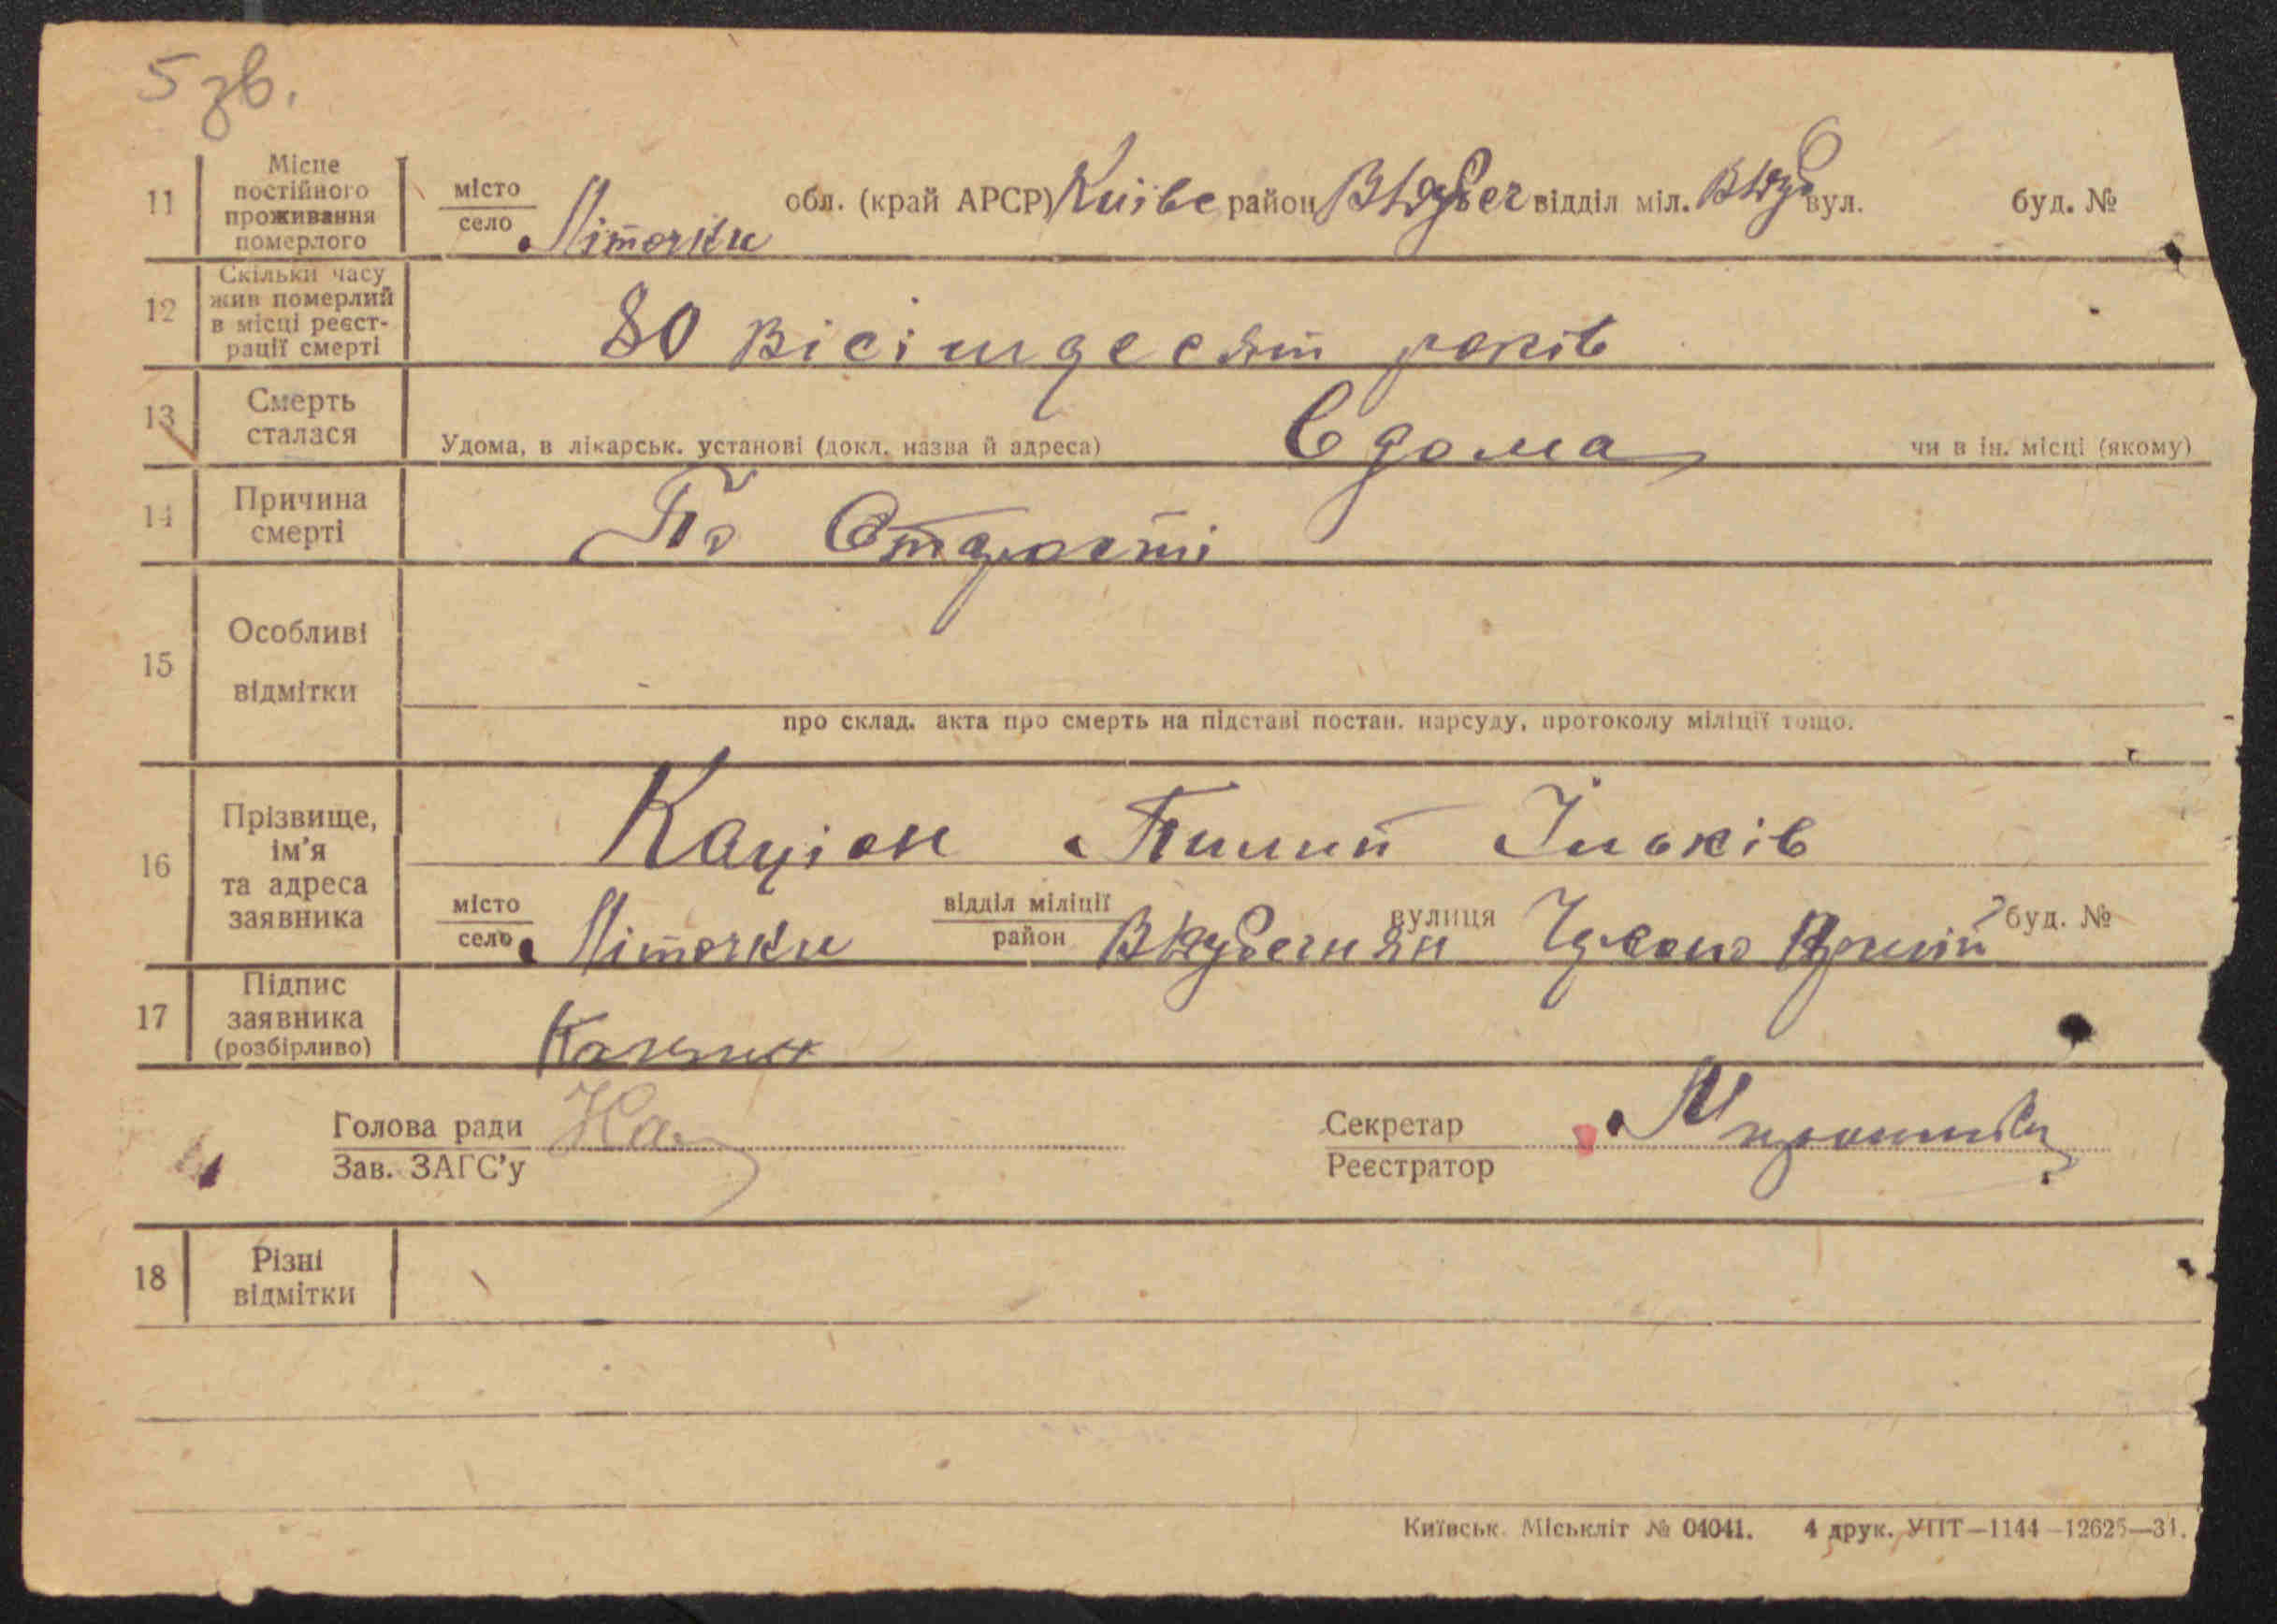 5 зв.
11 Місце постійного проживання померлого місто село Літочки обл. (край АРСР) Київс район відділ міл. вул. буд. №
12 Скільки часу жив померлий в місці реєстрації смерті 80 Вісімдесят років
13 Смерть сталася Удома, в лікарськ. установі (докл. назва й адреса) вдома чи в ін. місці (якому)
14 Причина смерті По Старасті
15 Особливі відмітки
про склад. акта про смерть на підставі постан. нарсуду, протоколу міліції тощо.
16 Прізвище, ім'я та адреса заявника Пилип
місто село Літочки відділ міліції район вулиця буд. №
17 Підпис заявника (розбірливо)
Голова ради Зав. ЗАГС'у Секретар Реєстратор
18 Різні відмітки
Київськ. Міськліт № 04041. 4 друк. УПТ—1144—12625—31.